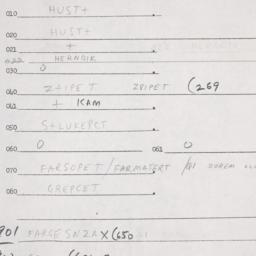 010 HUST+
020 HUST+
021 +
022 HERNDIK
030 0
040 Z+IPET ZPIPET (269
041 + KAM
050 S+LUKEPCT
060 0 061 0
070 FARSOPET/FARMATERT/
080 GREPCET
901 FARGESN2A X (650